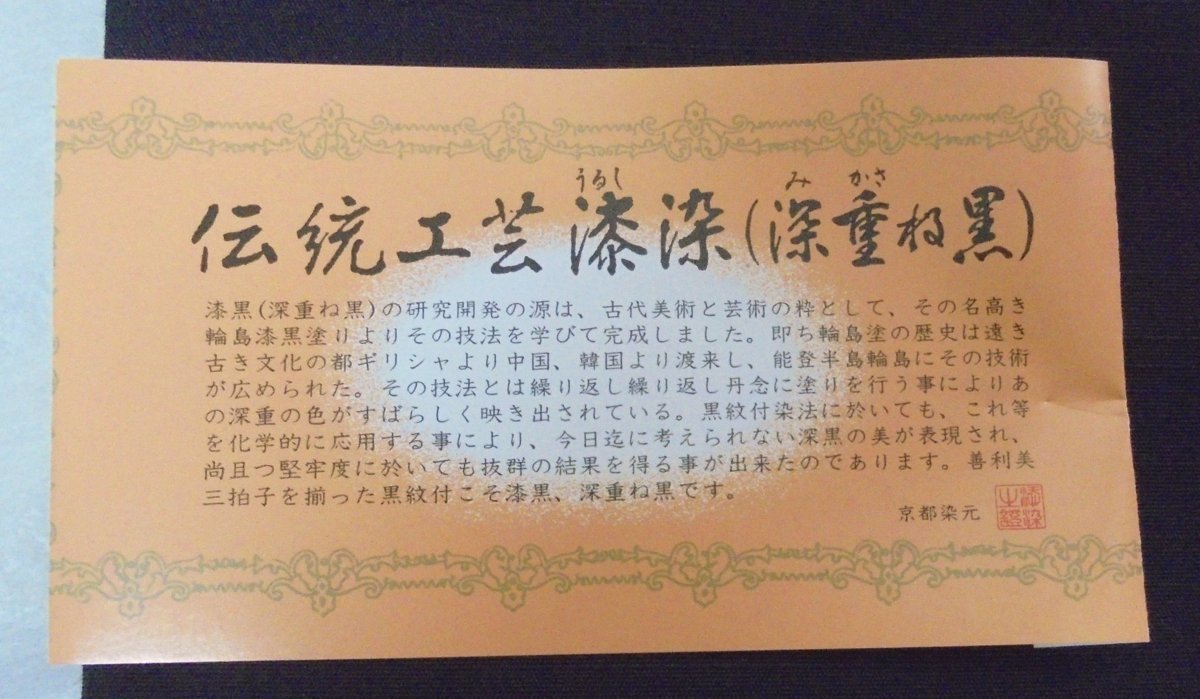 うるし み かさ
伝統工芸漆染(深重ね黒)
漆黒(深重ね黒)の研究開発の源は、古代美術と芸術の粋として、その名高き
輪島漆黒塗りよりその技法を学びて完成しました。即ち輪島塗の歴史は遠き
古き文化の都ギリシャより中国、韓国より渡来し、能登半島輪島にその技術
が広められた。その技法とは繰り返し繰り返し丹念に塗りを行う事によりあ
の深重の色がすばらしく映き出されている。黒紋付染法に於いても、これ等
を化学的に応用する事により、今日迄に考えられない深黒の美が表現され、
尚且つ堅牢度に於いても抜群の結果を得る事が出来たのであります。善利美
三拍子を揃った黒紋付こそ漆黒、深重ね黒です。
京都染元